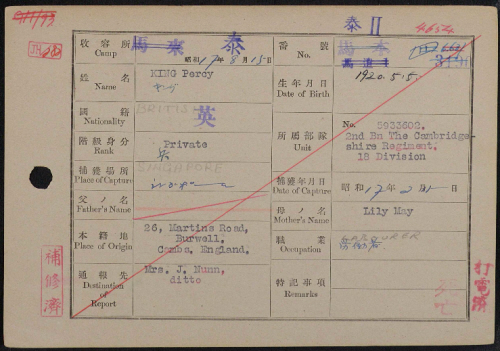 泰 II
4654
收容所 Camp 馬來 泰
昭和17年8月15日
番號 No. 馬來
姓名 Name KING Percy
生年月日 Date of Birth 1920.5.5.
國籍 Nationality BRITISH 英
階級身分 Rank Private
兵
所屬部隊 Unit No. 5933602.
2nd Bn The Cambridge-
shire Regiment.
18 Division
捕獲場所 Place of Capture SINGAPORE
捕獲年月日 Date of Capture 昭和17年2月15日
父ノ名 Father's Name
母ノ名 Mother's Name Lily May
本籍地 Place of Origin 26, Martins Road,
Burwell,
Cambs, England.
職業 Occupation LABOURER
勞働者
通報先 Destination of Report Mrs. J. Nunn,
ditto
特記事項 Remarks
補修濟
打電濟